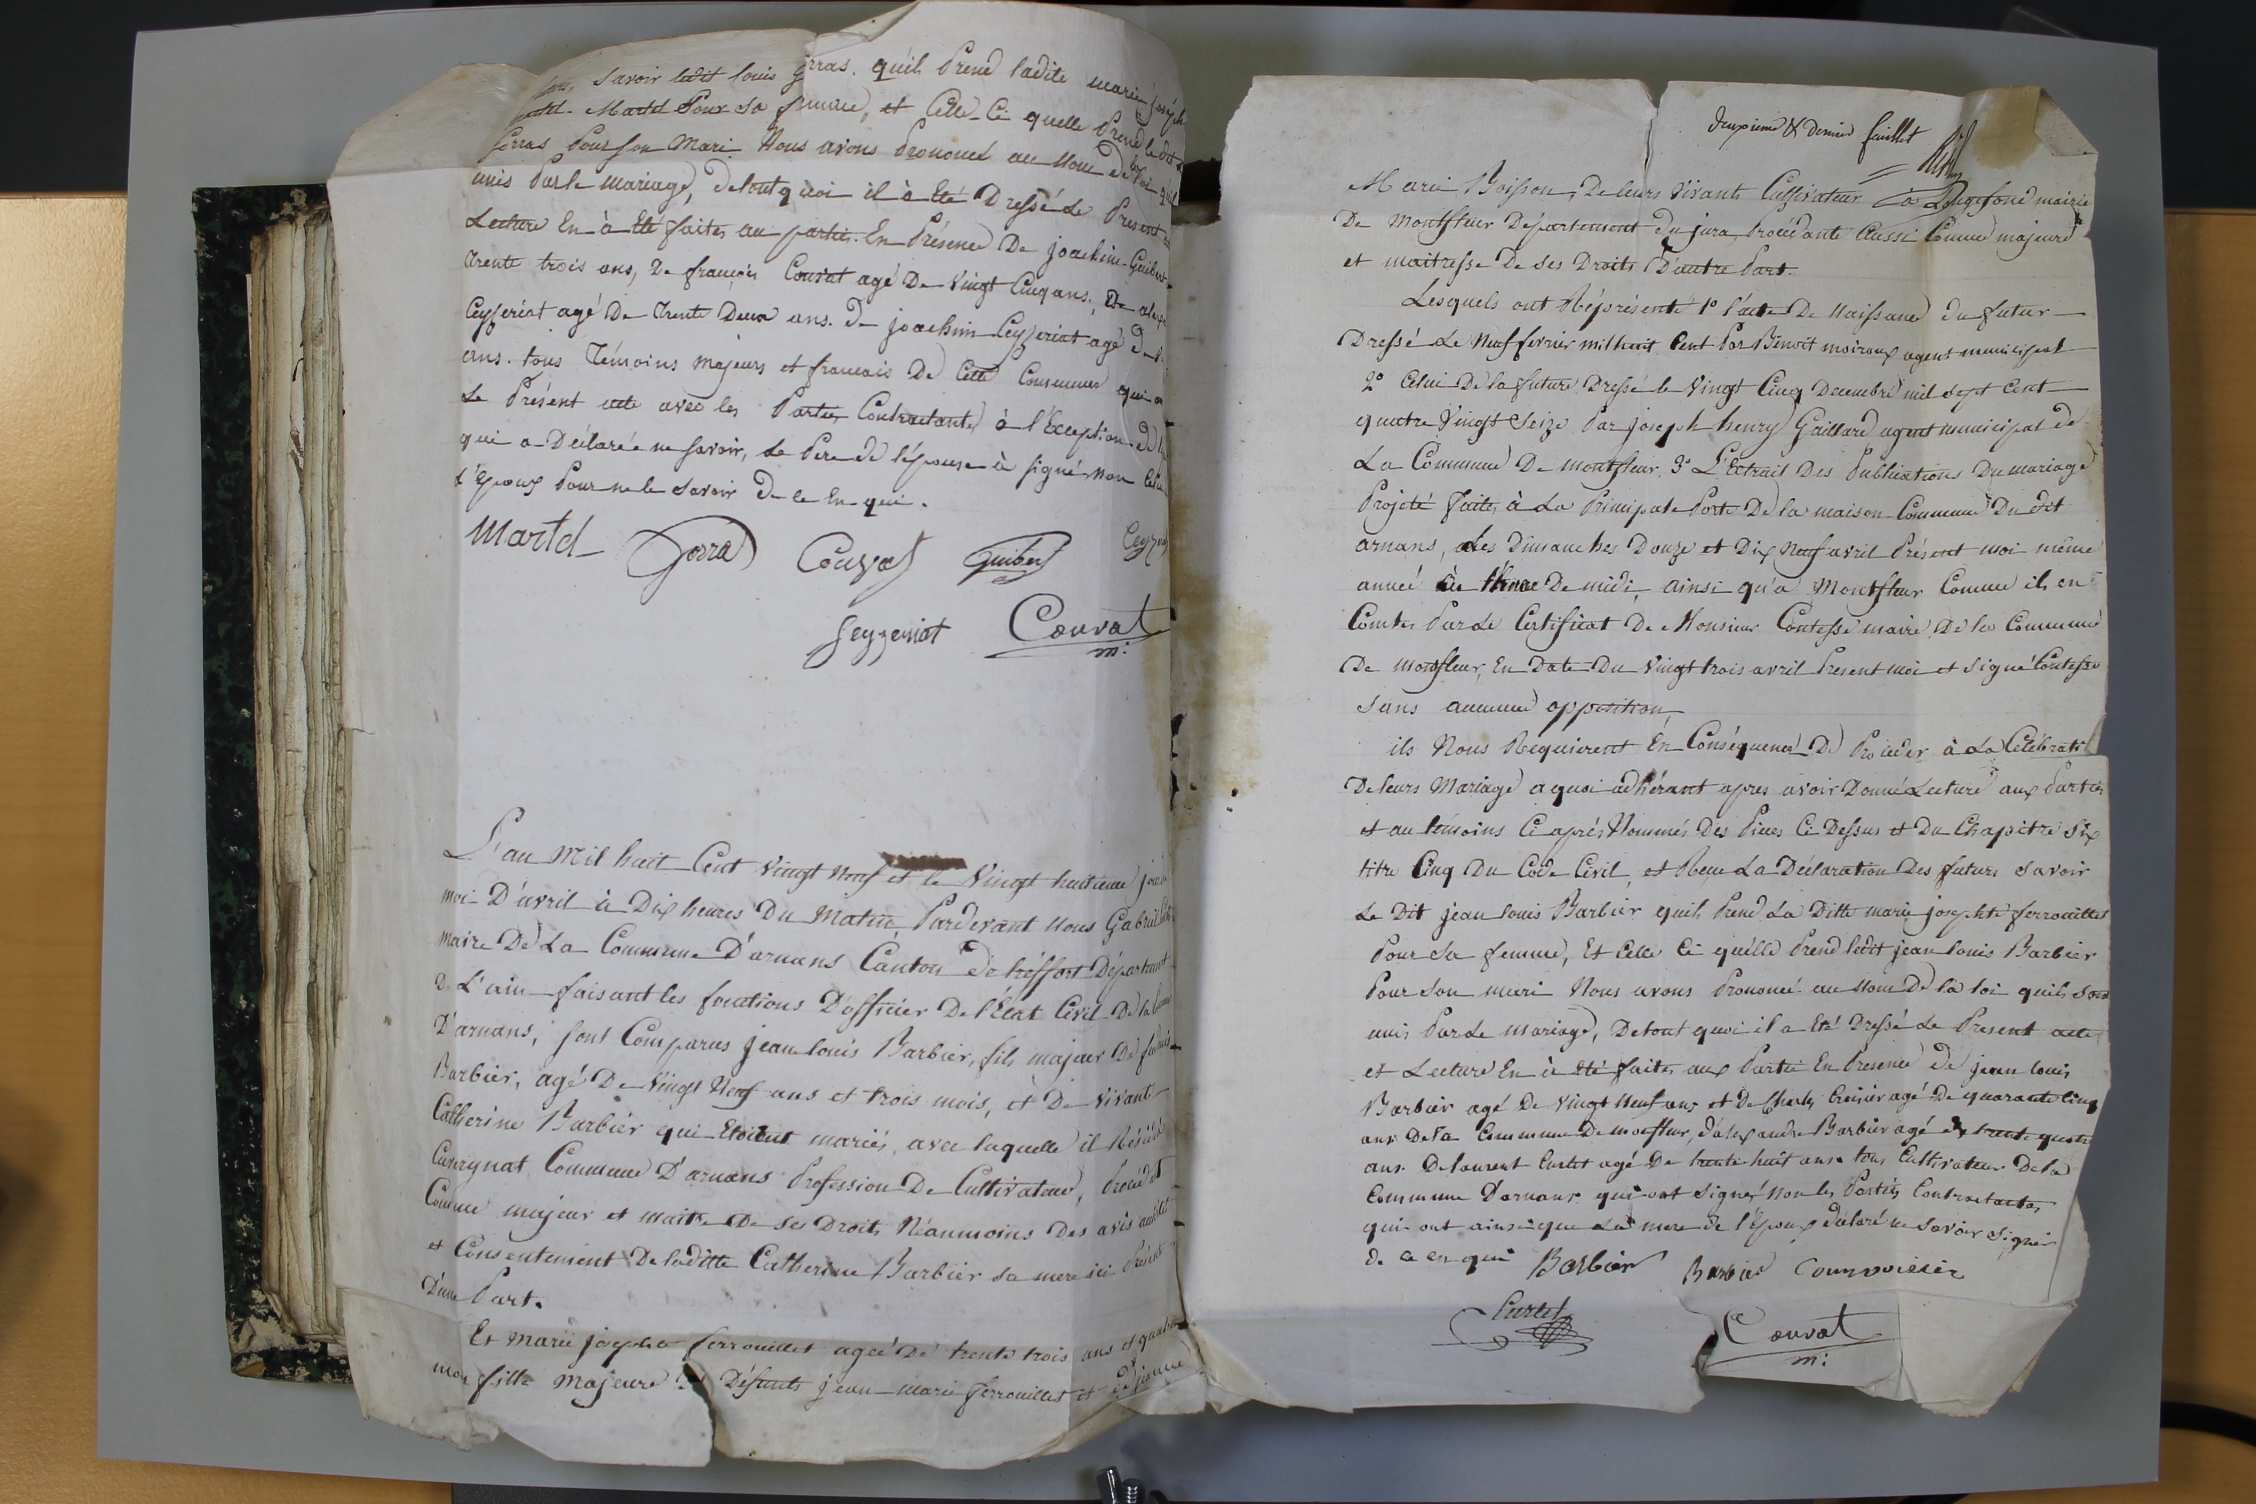 savoir ledit louis Gorras. qu'il Prend ladite marie joséph
Martel Pour sa femme, et Celle-Ci quelle Prend le dit
Gorras Pour son Mari. Nous avons Prononcé au Nom de la loi
unis Par le mariage, de tout quoi il à Eté Dressé Le Present
Lecture En à Eté faites au parties. En Présence De joachim Guibert
trente trois ans, De françois Couvat agé De Vingt Cinq ans, De
Ceyzeriat agé De trente Deux ans. De joachim Ceyzeriat agé De
ans. tous Témoins majeurs et francais De Cette Commune qui
Le Présent acte avec les Parties Contractantes à l'Exception de
qui a Déclarée ne savoir, Le Pere de l'épouse à signé non Celui
L'époux Pour ne le savoir de ce En qui.
Martel Gorras Couvat Guibert
Ceyzeriat Couvat
m:
L'an Mil huit Cent Vingt Neuf et le Vingt huitieme jour
moi D'avril à Dix heures Du Matin Pardevant Nous Gabriel
maire De La Commune D'arnans Canton de tréffort Département
De L'ain faisant les fonctions D'officier De l'État Civil De la
D'arnans, sont Comparus jean louis Barbier, fils majeur De
Barbier, agé De Vingt Neuf ans et trois mois, et De Vivant
Catherine Barbier qui Etoient mariés, avec laquelle il Reside
Commune D'arnans Profession De Cultivateur, Procédant
Comme majeur et maitre De ses Droits Néanmoins Des avis
et Consentement De laditte Catherine Barbier sa mere ici Présente
D'une Part.
Et marie josephte ferrouillet agée De trente trois ans et quatre
moi fille majeure De Défunts jean marie ferrouillet et De jeanne
deuxieme & dernier feuillet
Marie Boisson, De leurs Vivants Cultivateur à Lingefond mairie
De Montfleur Département du jura, Procédante Aussi Comme majeure
et maitresse De ses Droits D'autre Part.
Lesquels ont Répresenté 1º l'acte De Naissance du futur
Dressé Le Neuf fevrier mil huit Cent Par Benoit moiroux agent municipal
2º Celui De la future Dressé le Vingt Cinq Decembre mil sept Cent
quatre Vingt Seize Par joseph henry Gaillard agent municipal de
La Commune De montfleur. 3º L'Extrait Des Publications Du mariage
Projeté faites à La Principale Porte De la maison Commune Du dit
arnans, Les Dimanches Douze et Dix Neuf avril Présent moi même
année De midi, ainsi qu'à Montfleur Comme il en
Comtes Par Le Certificat De Monsieur Contesse maire De la Commune
De montfleur, En Date Du Vingt trois avril Present moi et signé Contesse
sans aucune opposition,
ils Nous Requierent En Conséquence De Proceder à La Célébration
De leurs Mariage a quoi adhérant apres avoir Donné Lecture aux Parties
et au témoins Ci aprés Nommés Des Pieces Ci Dessus et Du Chapitre Six
titre Cinq Du Code Civil, et Reçu La Déclaration Des futurs savoir
Le Dit jean louis Barbier quil Prend La Ditte marie josephte ferrouillet
Pour sa femme, Et Celle Ci quélle Prend ledit jean louis Barbier
Pour son mari Nous avons Prononcé au Nom De la loi quils sont
unis Par Le mariage, De tout quoi il a Eté Dressé Le Present acte
et Lecture En à Eté faites aux Partie En Presence de jean louis
Barbier agé De Vingt Neuf ans et De Charles agé De quarante Cinq
ans De la Commune De montfleur, d'alexandre Barbier agé de trente quatre
ans. De laurent Curtet agé De trente huit ans tous Cultivateur De la
Commune D'arnans qui ont signé Non les Parties Contractantes
qui ont ainsi que La mere de l'Epoux déclaré ne savoir signer
de ce en qui Barbier Barbier
Curtet Couvat
m: